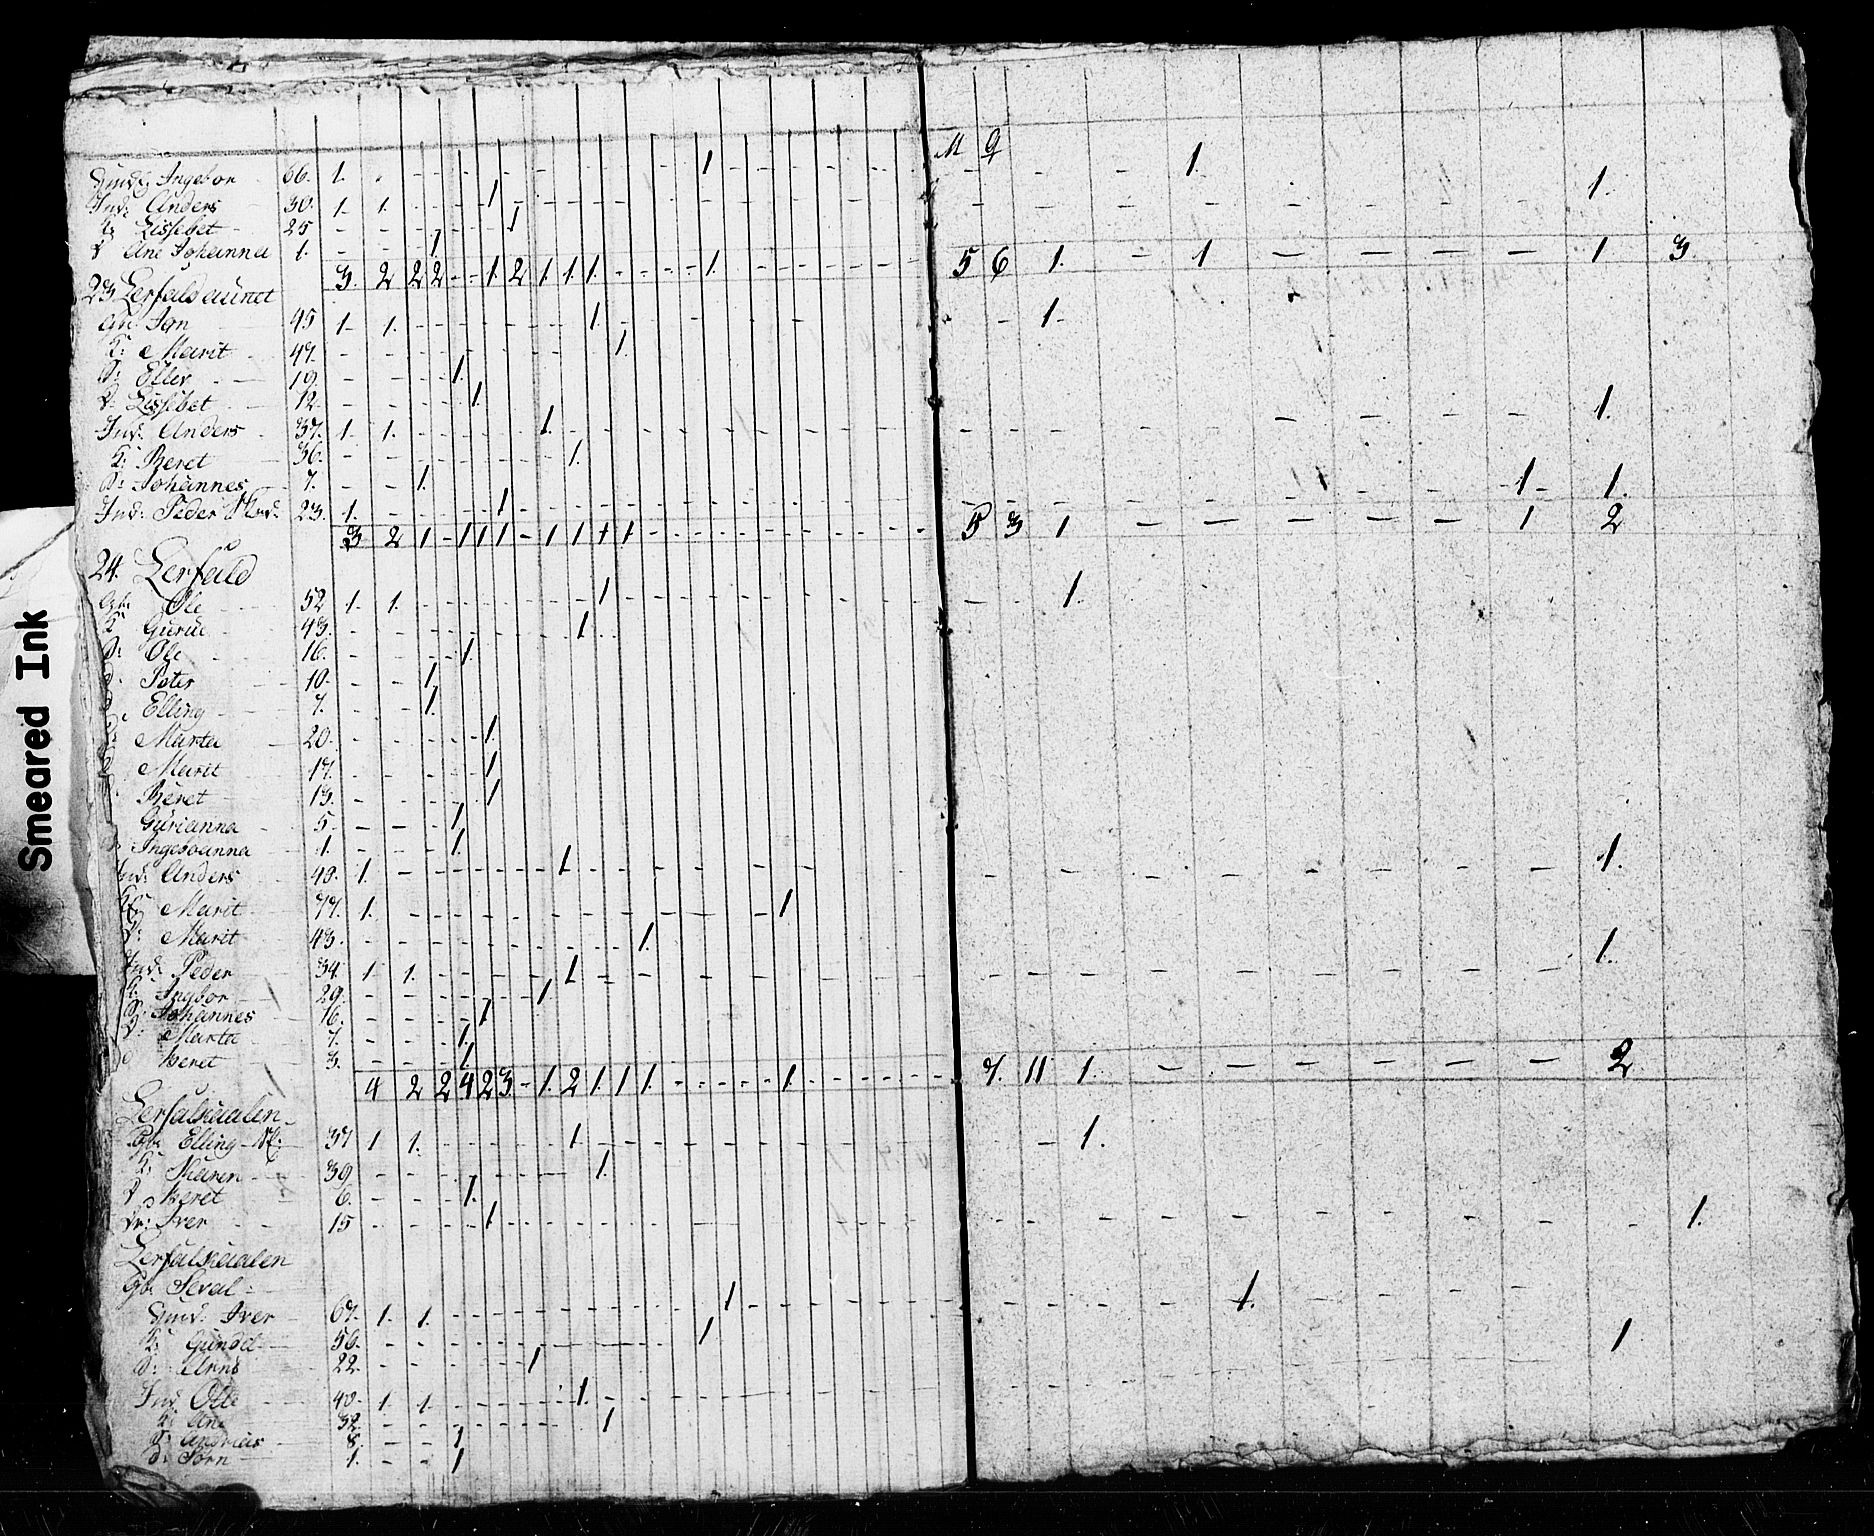 M Q
Ingebor 66. 1. 1 1.
Ind: Anders 30. 1. 1. 1 1.
K: Lissebet 25 1
D Ane Johanna 1. 1
3. 2 2 2 1. 2 1 1 1. 1. 5 6 1. 1 1 3.
23 Lerfaldsaunet
Gb: Jon 45 1. 1. 1. 1.
K: Marit 49. 1.
S: Eller 19. 1.
D: Lissebet 12. 1.
Ind: Anders 37. 1. 1. 1. 1.
K: Beret 36. 1.
S: Johannes 7. 1.
Ind: Peder 23. 1. 1 1 1.
3 2 1 1 1 1 1 1 1 1 5 3 1 1 2
24. Lerfald
Gb: Ole 52 1. 1. 1 1.
K: Gurue 43. 1.
S: Ole 16. 1.
Peter 10. 1.
Elling 7. 1.
Marta 20. 1.
Marit 17. 1.
Beret 13. 1
Gurianna 5. 1
Ingeoanna 1. 1.
Ind: Anders 40. 1. 1. 1.
Marit 77. 1. 1
D: Marit 43. 1.
Ind: Peder 34. 1. 1. 1. 1.
K: Ingbor 29. 1.
S: Johannes 16. 1
D: Marta 7. 1.
d Beret 3. 1
4 2 2 4 2 3. 1. 2 1. 1 1. 1. 7. 11 1. 2.
Lerfalskaalen
Gb: Elling 37 1 1. 1. 1.
K: Maren 39 1.
D Beret 6. 1.
Dr: Iver 15 1. 1.
Lerfalskaalen
Gb: Seval
Iver 67. 1. 1. 1 1.
K: Gunild 56. 1 1
D: Anne 22. 1
Ind: Olle 40. 1 1. 1.
K: Ane 32. 1
S: Andreas 8. 1
d: Jørn 1. 1
Smeared Ink